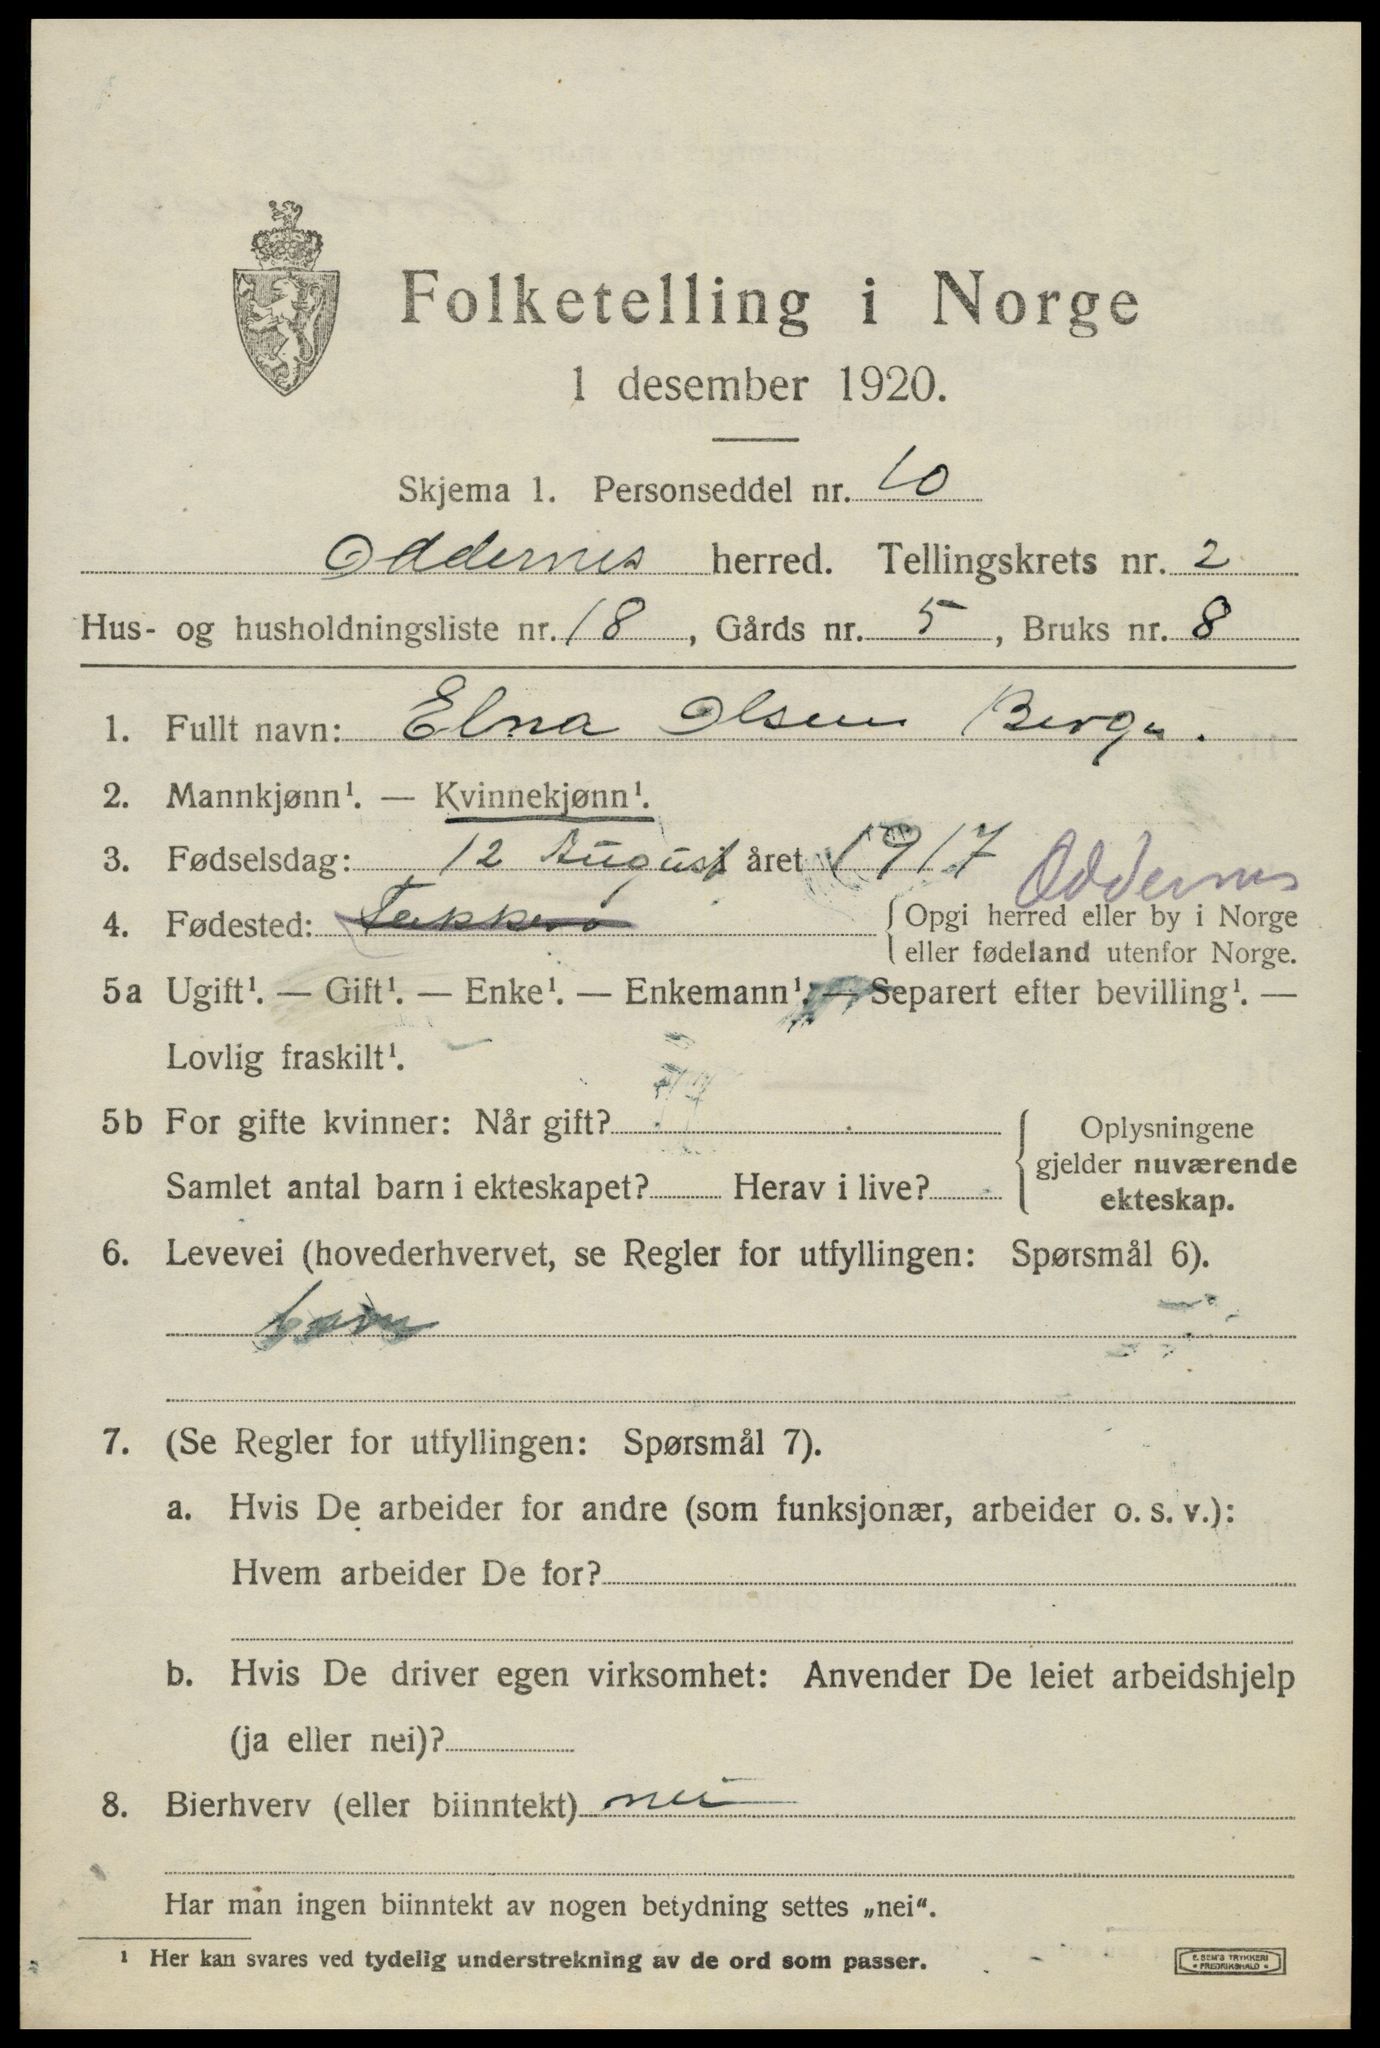 Folketelling i Norge
1 desember 1920.
Skjema 1. Personseddel nr. 10
Oddernes herred. Tellingskrets nr. 2
Hus- og husholdningsliste nr. 18, Gårds nr. 5, Bruks nr. 8
1. Fullt navn: Elna Olsen
2. Mannkjønn¹. — Kvinnekjønn¹.
3. Fødselsdag: 12 August året 1917
Oddernes
4. Fødested:
Opgi herred eller by i Norge
eller fødeland utenfor Norge.
5a Ugift¹. — Gift¹. — Enke¹. — Enkemann¹. — Separert efter bevilling¹. —
Lovlig fraskilt¹.
5b For gifte kvinner: Når gift?
Samlet antal barn i ekteskapet? Herav i live?
Oplysningene
gjelder nuværende
ekteskap.
6. Levevei (hovederhvervet, se Regler for utfyllingen: Spørsmål 6).
barn
7. (Se Regler for utfyllingen: Spørsmål 7).
a. Hvis De arbeider for andre (som funksjonær, arbeider o. s. v.):
Hvem arbeider De for?
b. Hvis De driver egen virksomhet: Anvender De leiet arbeidshjelp
(ja eller nei)?
8. Bierhverv (eller biinntekt) nei
Har man ingen biinntekt av nogen betydning settes „nei“.
¹ Her kan svares ved tydelig understrekning av de ord som passer.
E. SEM'S TRYKKERI
FREDRIKSHALD